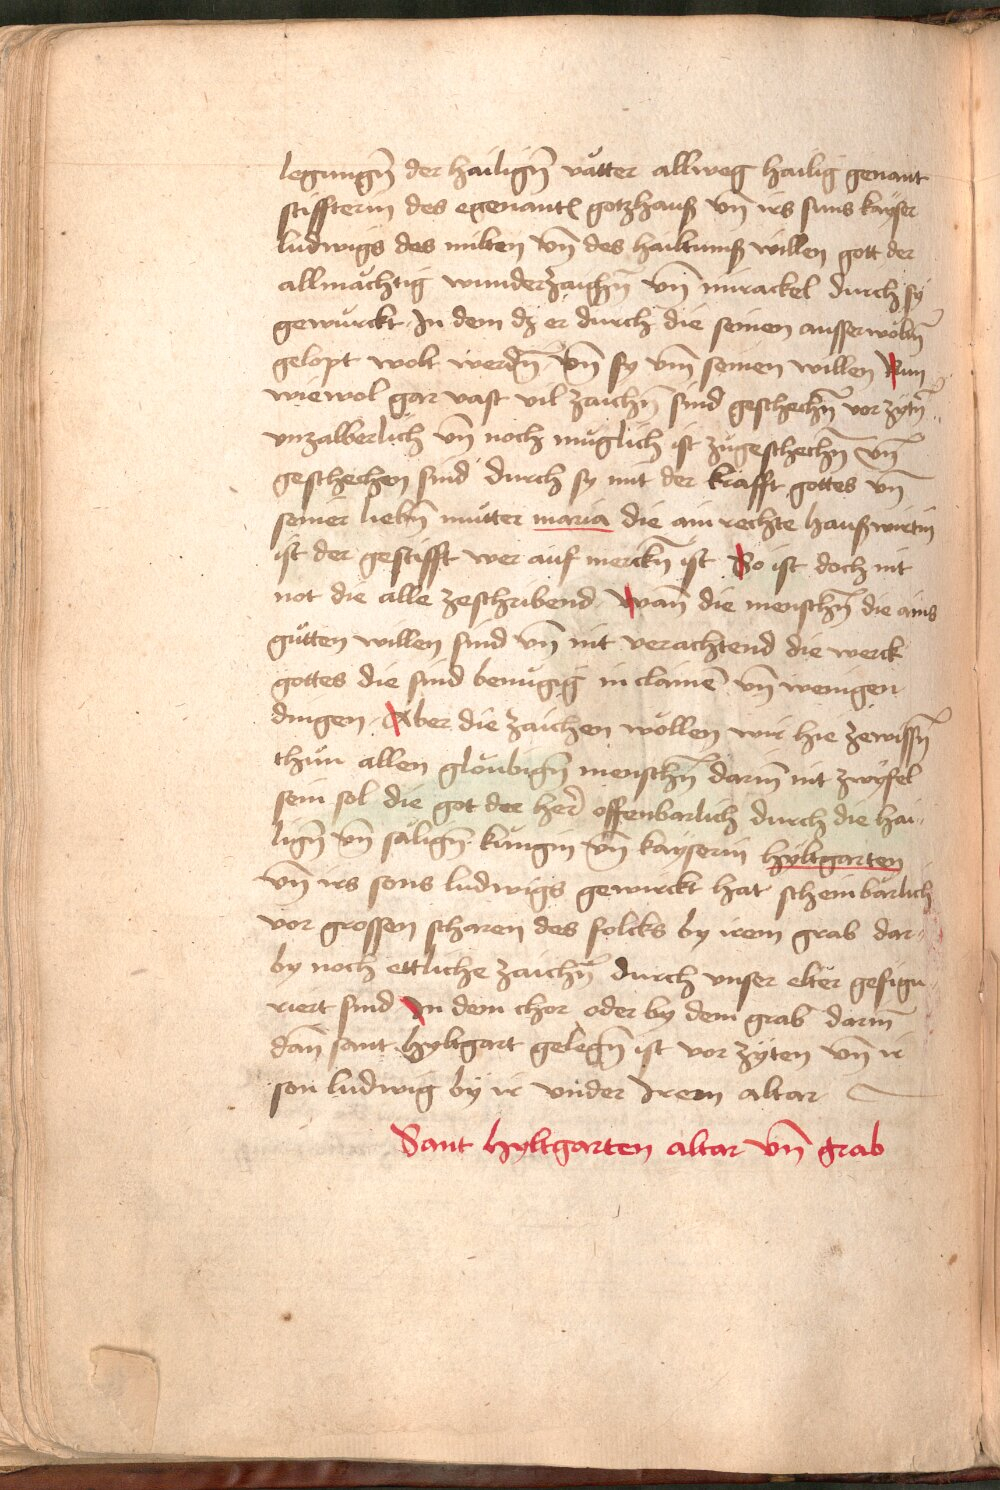 legungn̄ der hailign̄ vätter allweg hailig genant
stiffterin des egenantē gotzhauß vn̄ irs suns kayser
ludwigs des milten vn̄ des hailtumß willen gott der
allmächtig wunderzaichn̄ vn̄ mirackel durch sy
gewürckt In dem dz er durch die seinen ausserwöltn̄
gelopt wolt werdn̄ vn̄ sy vm̄ seinen willen Nun
wiewol gar vast vil zaichn̄ sind geschechn̄ vor zÿtn̄
vnzalberlich vn̄ noch müglich ist zůgeschechn̄ vn̄
geschechen sind durch sy mit der krafft gottes vn̄
seiner liebn̄ můtter maria die ain rechte haußwirtin
ist der gestifft wer auf merckn̄ ist So ist doch nit
not die alle zeschribend Wan̄ die menschn̄ die ains
gůtten willen sind vn̄ nit verachtend die werck
gottes die sind benügig in clainē vn̄ wenigen
dingen Aber die zaichen wöllen wir hie zewissn̄
thůn allen gloubign̄ menschn̄ darin̄ nit zwyfel
sein sol die got der her̄ offenbarlich durch die hai„
lign̄ vn̄ sälign̄ küngin vn̄ kayserin hyltgarten
vn̄ irs sons ludwigs gewirckt hat scheinbärlich
vor grossen scharen des folcks by irem grab dar„
by noch ettliche zaichn̄ durch vnser elter gefigu„
riert sind In dem chor oder by dem grab darin̄
dan̄ sant hyltgart gelegn̄ ist vor zÿten vn̄ ir
son ludwig bÿ ir vnder Irem altar
Sant hyltgarten altar vn̄ grab